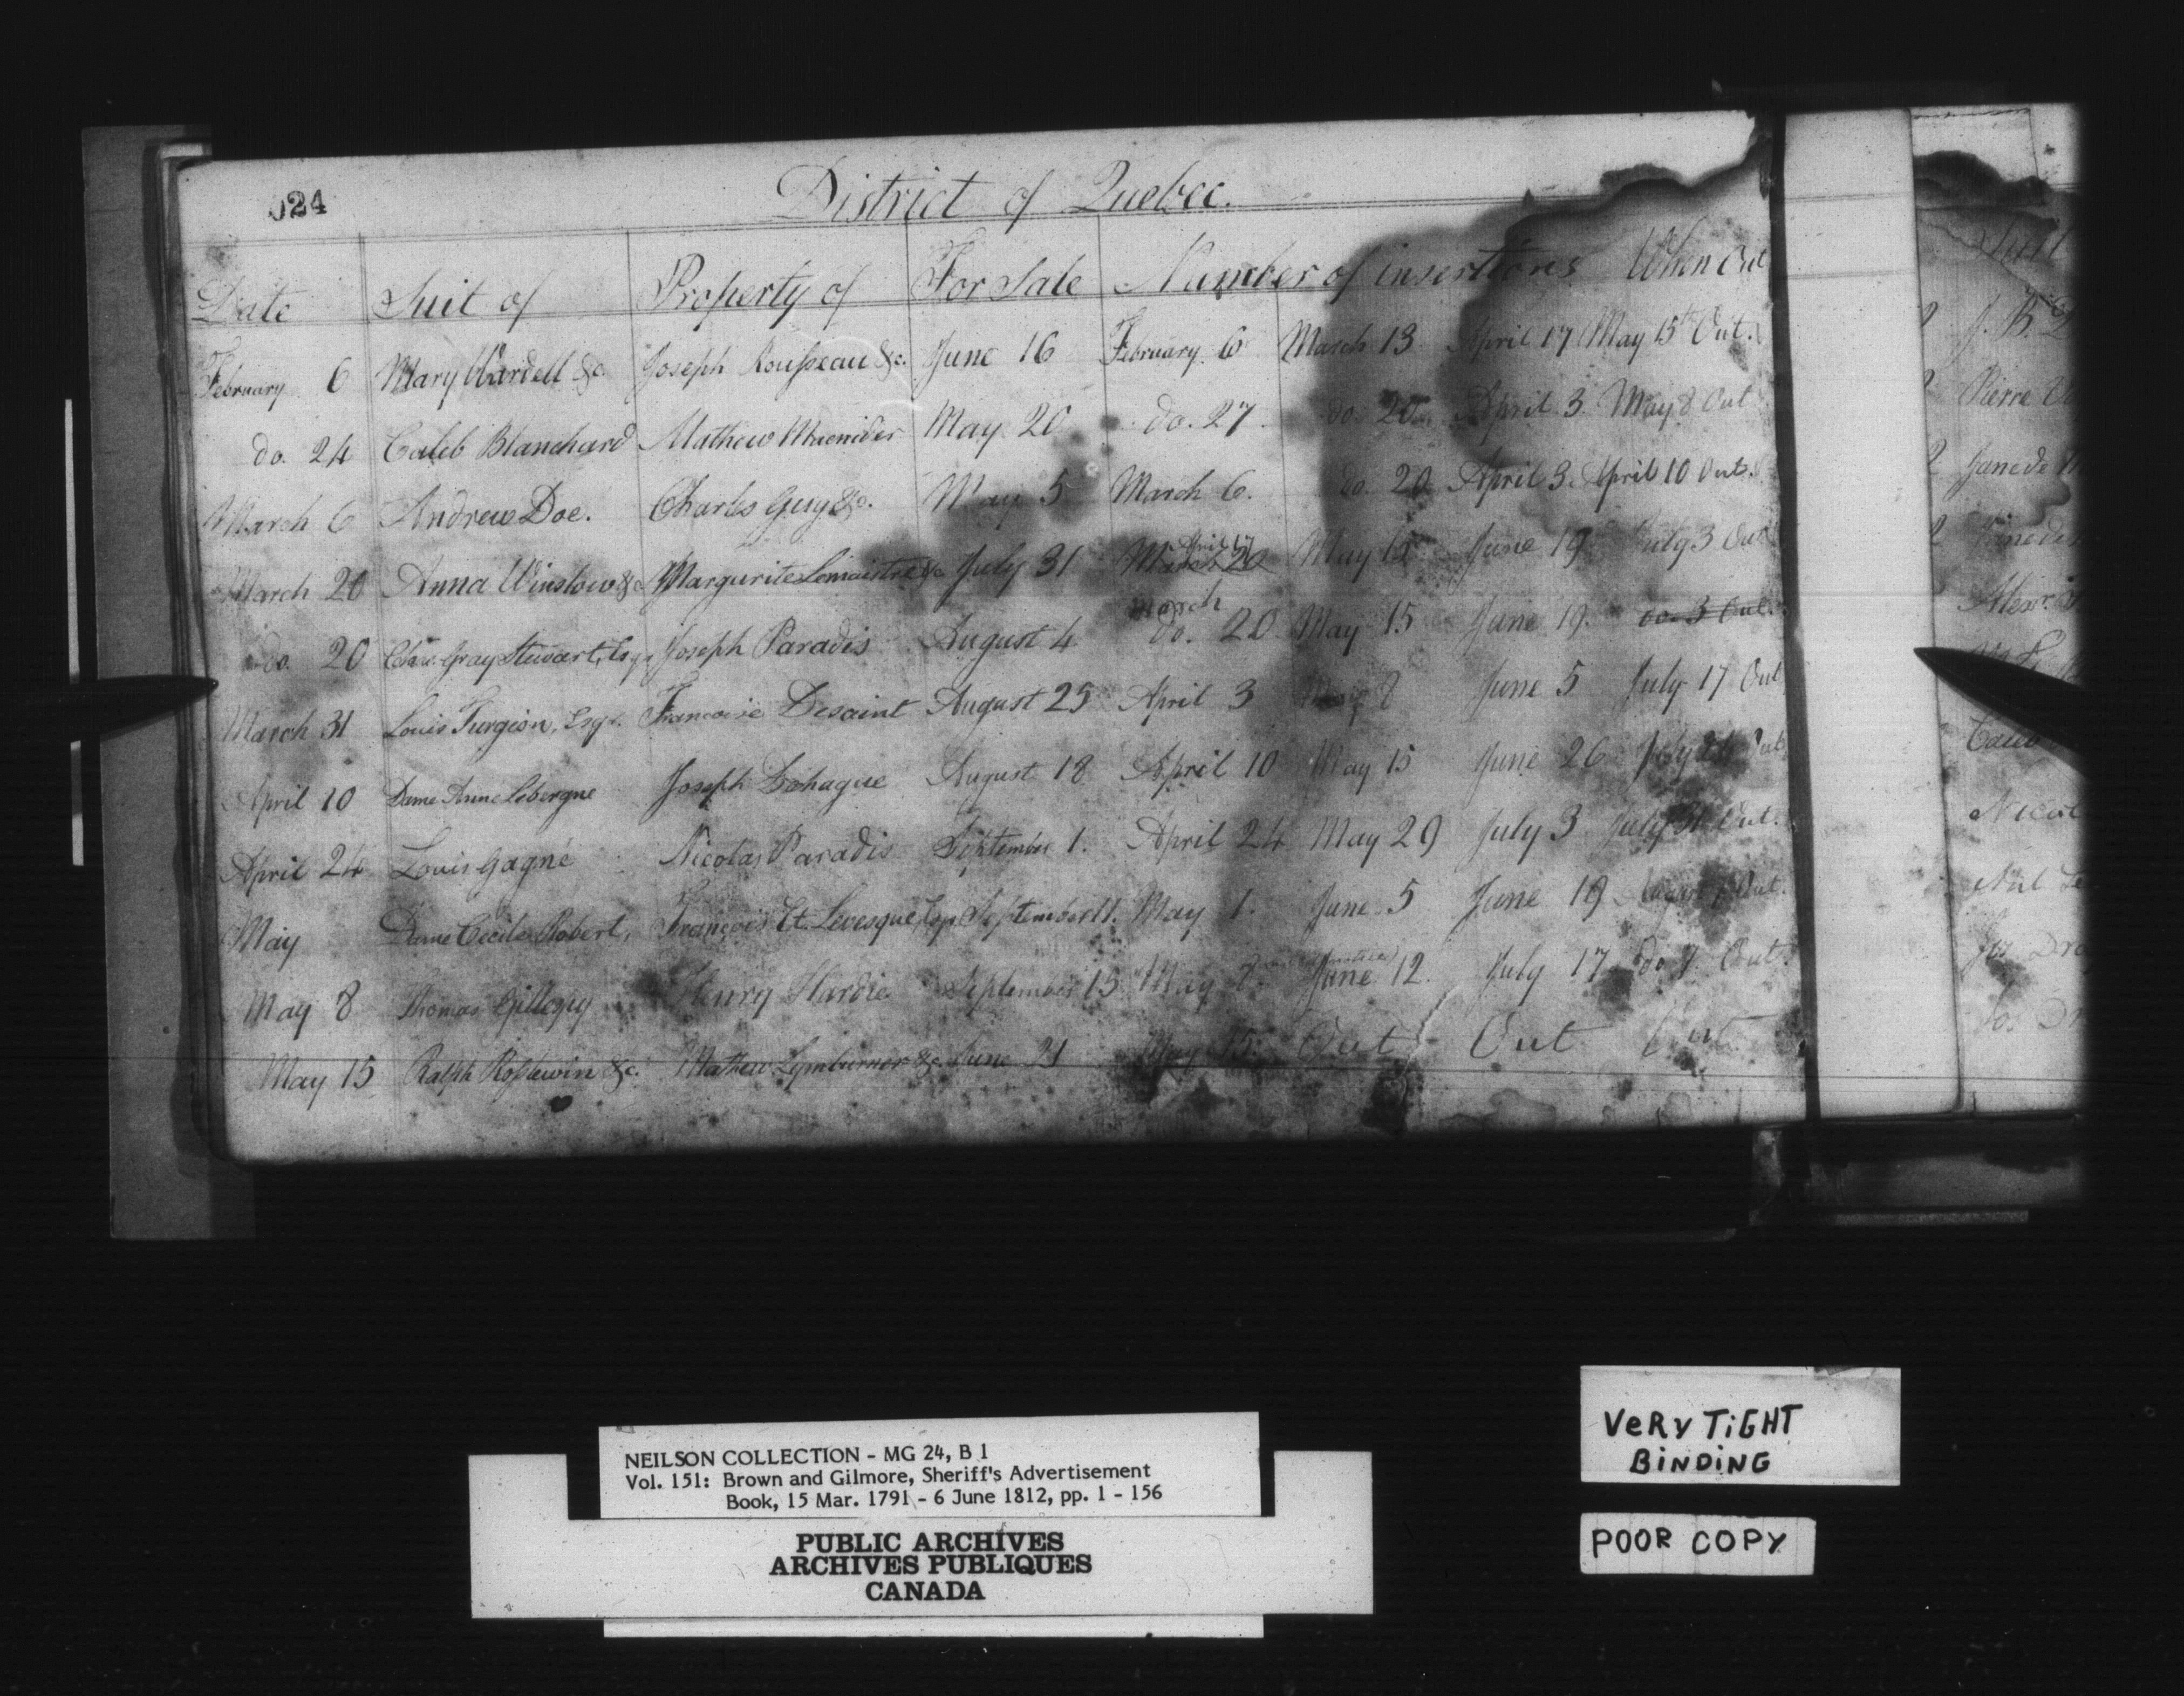 024
District of Quebec.
Date Suit of Property of For Sale Number of insertions When Out
February 6 Mary Wardell &c. Joseph Rousseau &c. June 16 February 6 March 13 April 17 May 15th Out.
do. 24 Caleb Blanchard Mathew Macnider May 20 do. 27 do. 20 April 3 May 8 Out
March 6 Andrew Doe. Charles Guy &c. May 5 March 6. do. 20 April 3. April 10 Out.
April 17
March 20 Anna Winslow &c Margurite Lemaistre &c July 31 March 20 May 15 June 19 July 3 Out
march
do. 20 Gray Stewart, Esqr Joseph Paradis August 4 do. 20 May 15 June 19. do. 3 Out.
March 31 Louis Turgion, Esqr. Francoise Desaint August 25 April 3 May 8 June 5 July 17 Out
April 10 Dame Anne Lebergne Joseph August 18 April 10 May 15 June 26 July Out
April 24 Louis Gagné Nicolas Paradis September 1. April 24 May 29 July 3 July 31 Out.
May Dame Cecile Robert, François Et. Levesque, Esqr. September 11. May 1. June 5 June 19 August Out.
May 8 Thomas Gillespy Henry Hardie September 15 May 8 June 12. July 17 do 7 Out.
May 15 Ralph Rosslewin &c. Mathew Lymburner &c. June 21 May 15. Out Out Out
Suit
J. B.
Pierre
Jane de
Alexr.
Caleb
Nicol
Jos Dr
NEILSON COLLECTION - MG 24, B 1
Vol. 151: Brown and Gilmore, Sheriff's Advertisement
Book, 15 Mar. 1791 - 6 June 1812, pp. 1 - 156
PUBLIC ARCHIVES
ARCHIVES PUBLIQUES
CANADA
VERY TIGHT
BINDING
POOR COPY